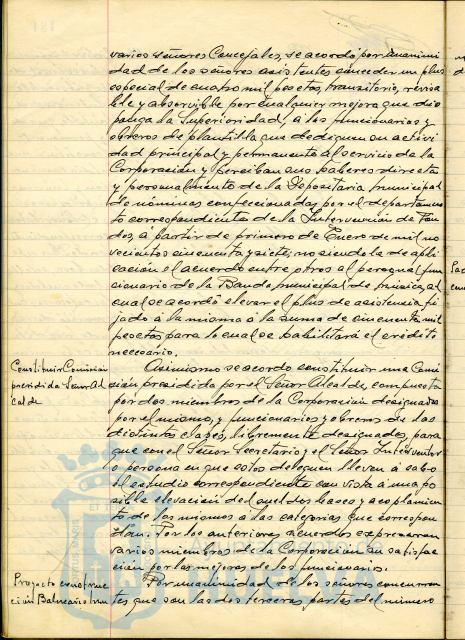 varios señores Concejales, se acordó por unanimi
dad de los señores asistentes conceder un plus
especial de cuatro mil pesetas, transitorio, revisa
ble y absorvible por cualquier mejora que dis
ponga la Superioridad, a los funcionarios y
obreros de plantilla que dediquen su activi
dad principal y permanente al servicio de la
Corporación y perciban sus haberes directa
y personalmente de la Depositaria municipal
de nóminas confeccionadas por el departamen
to correspondiente de la Intervención de Fon
dos, a partir de primero de Enero de mil no
vecientos cincuenta y siete; no siendo de apli
cación el acuerdo entre otros al personal fun
cionario de la Banda municipal de música, al
cual se acordó elevar el plus de asistencia fi
jado a la misma a la suma de cincuenta mil
pesetas para lo cual se habilitará el crédito
necesario.
Constituir Comision
presidida Señor Al
calde
Asimismo se acordo constituir una Comi
ción presidida por el Señor Alcalde, compuesta
por dos miembros de la Corporación designados
por el mismo, y funcionarios y obreros de las
distintas clases, libremente designados, para
que con el Señor Secretario y el Señor Interventor
o persona en que estos deleguen lleven a cabo
el estudio correspondiente con vista a una po
sible elevación del sueldos bases y acoplamien
to de los mismos a las categorias que correspon
dan. Por los anteriores acuerdos expresaron
varios miembros de la Corporación su satisfac
ción por las mejoras de los funcionarios.
Proyecto construc
ción Balneario
Por unanimidad de los señores concurren
tes que son las dos terceras partes del número